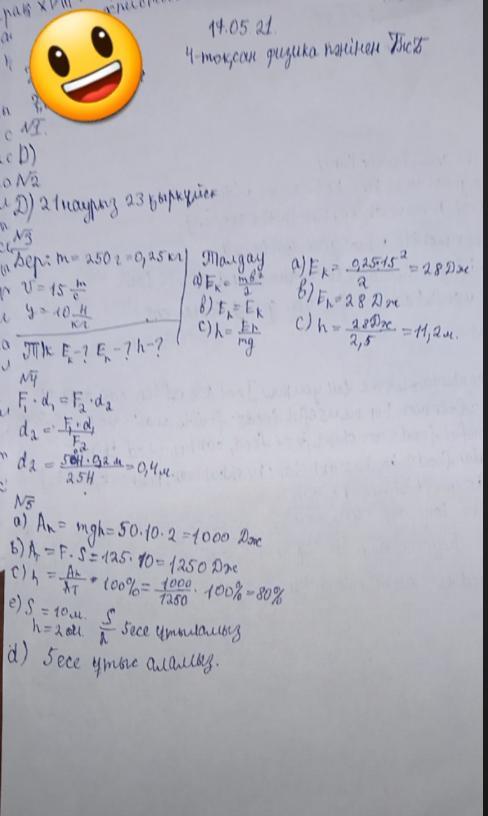 17.05 21.
4-тоқсан физика пәнінен БжБ
№1.
D)
№2
D) 21 наурыз 23 қыркүйек
№3
Бер: m = 250 г = 0,25 кг
υ = 15 м/с
g = 10 Н/кг
Т/К Eк-? Eп-? h-?
Талдау
a) Eк = mυ²/2
b) Eп = Eк
c) h = Eп/mg
a) Eк = 0,25·15²/2 = 28 Дж
b) Eп = 28 Дж
c) h = 28 Дж/2,5 = 11,2 м.
№4
F₁ · d₁ = F₂ · d₂
d₂ = F₁·d₁/F₂
d₂ = 50Н·0,2 м/25Н = 0,4 м.
№5
a) Aп = mgh = 50·10·2 = 1000 Дж
b) Aт = F·S = 125·10 = 1250 Дж
c) η = Aп/Aт · 100% = 1000/1250 · 100% = 80%
e) S = 10 м.
h = 2 м. S/h 5 есе ұтыламыз
d) 5 есе ұтыс аламыз.